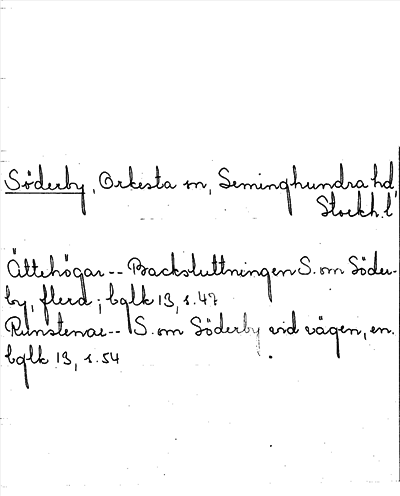 Söderby, Orkesta sn, Seminghundra hd,
Stockh. l
Ättehögar -- Backsluttningen S. om Söder-
by, flerd; bglk 13, s. 47
Runstenar -- S. om Söderby vid vägen, en.
bglk 13, s. 54